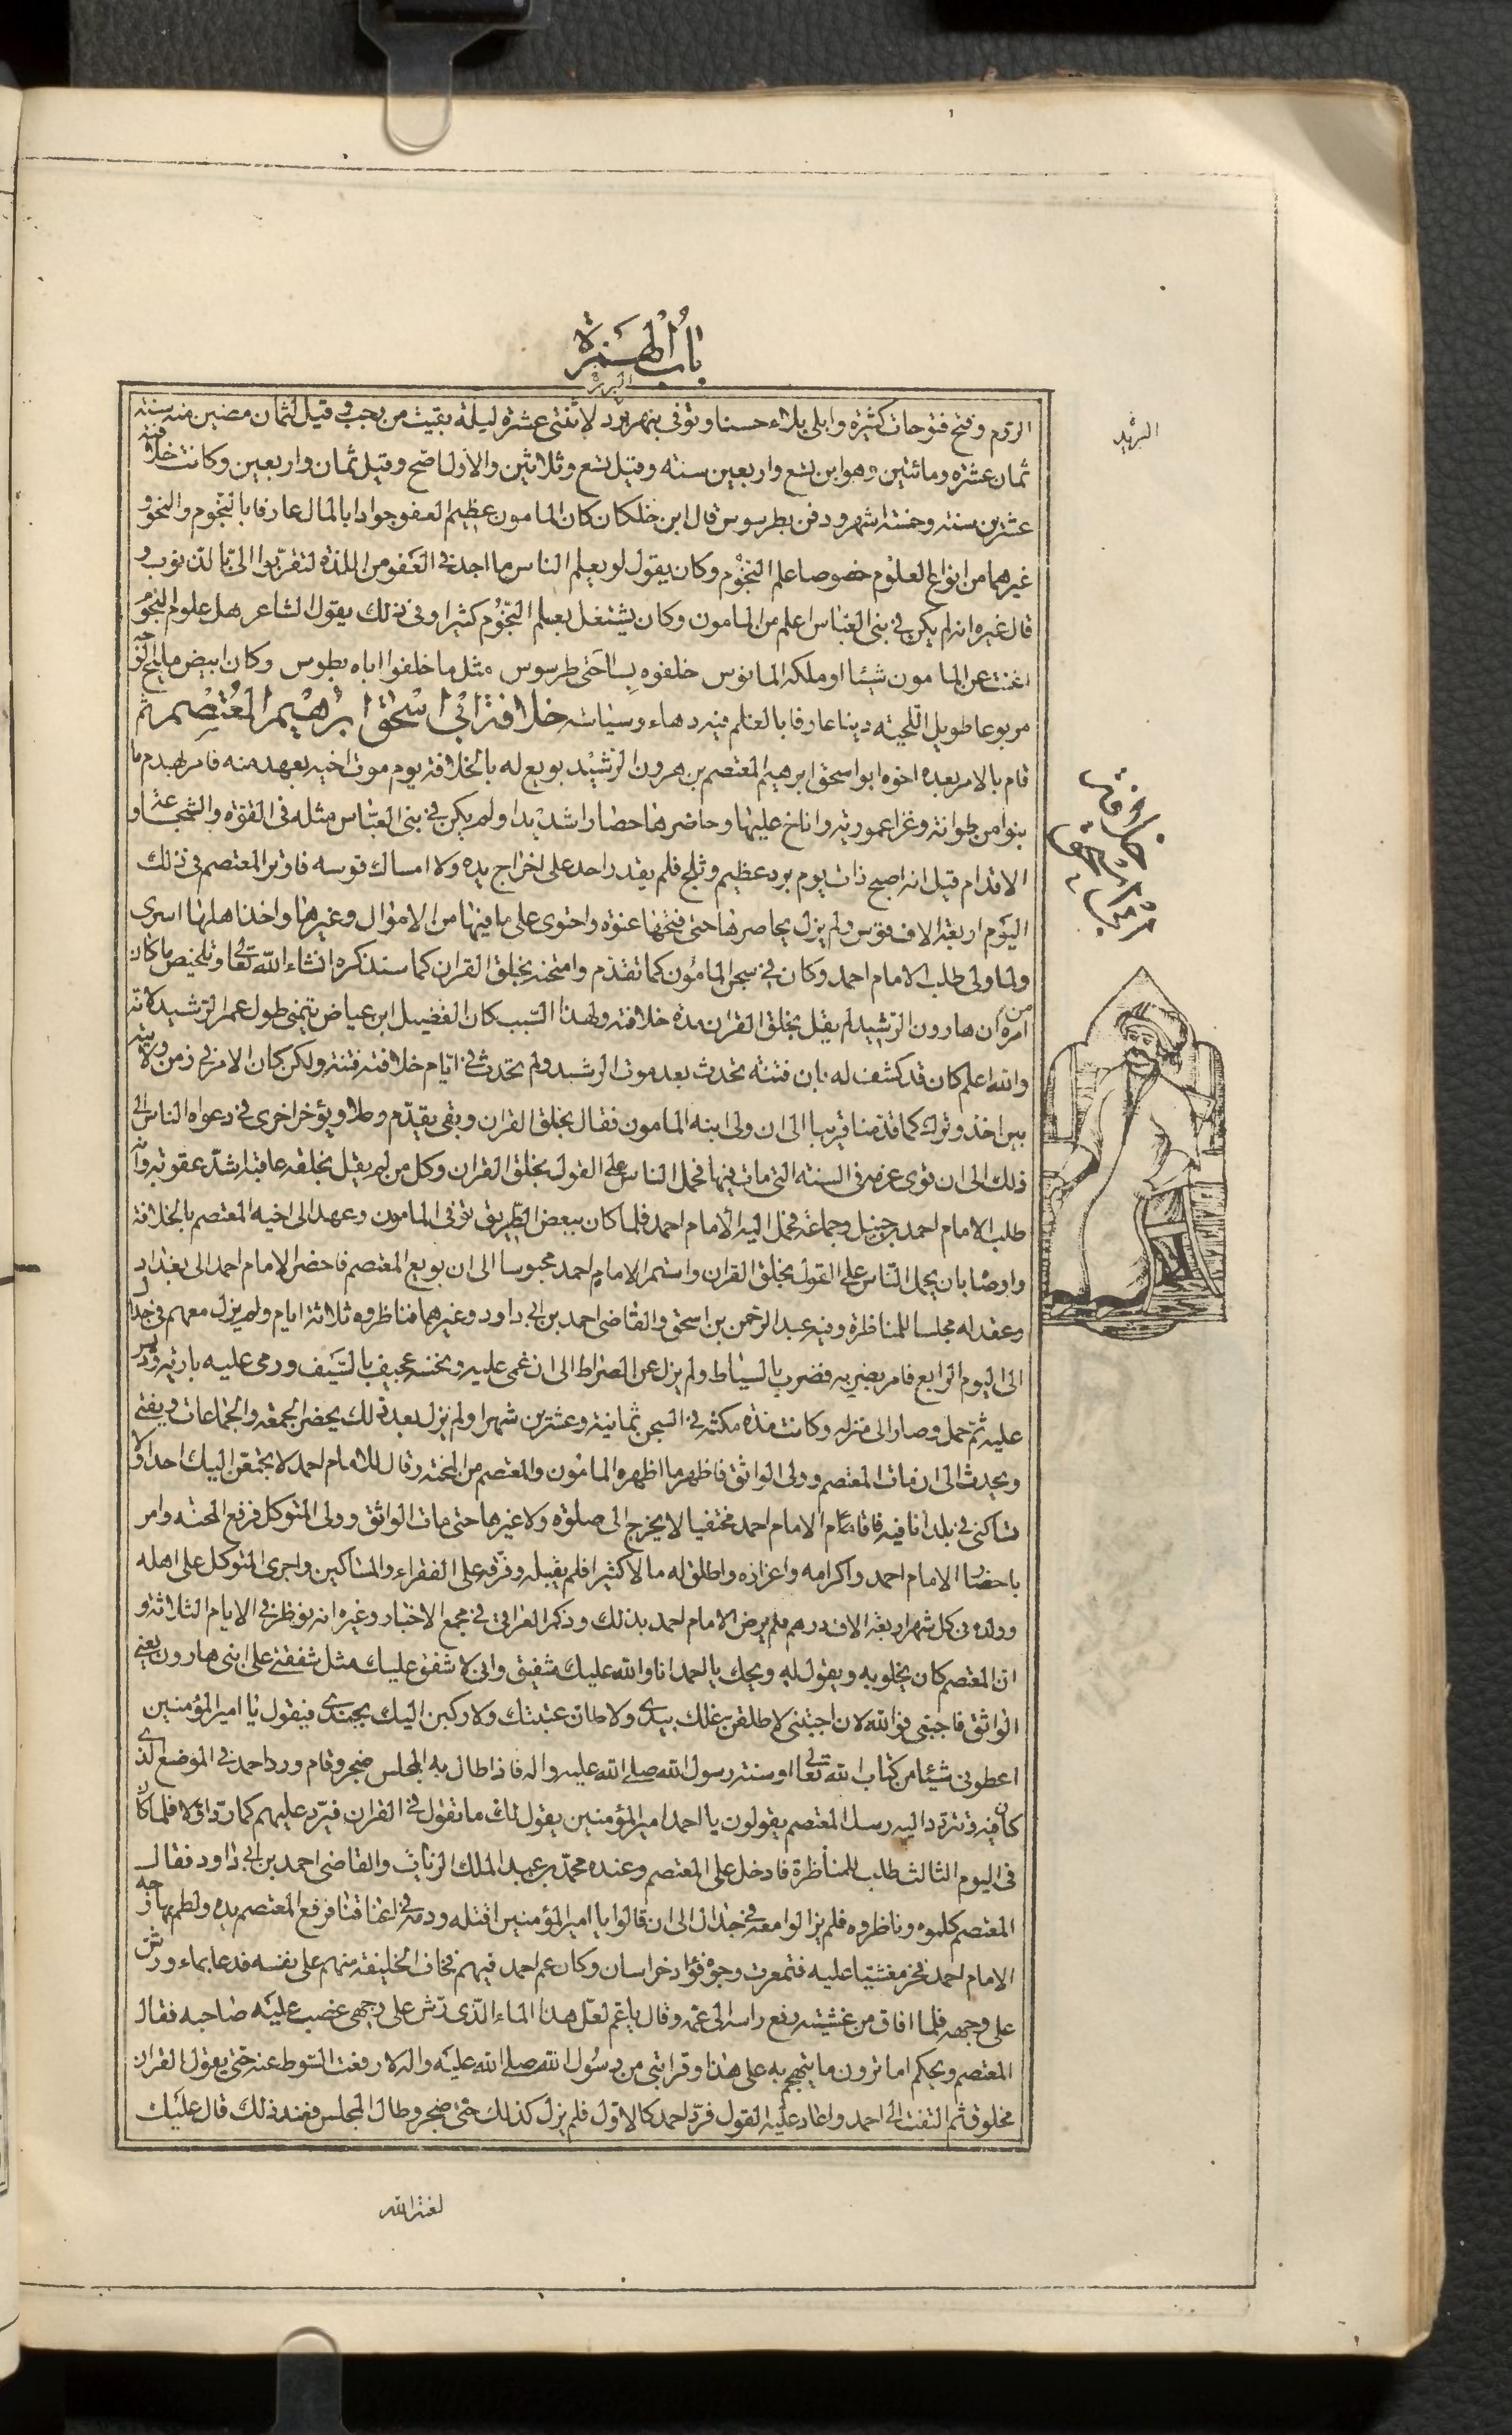 باب الهمزة
البربر
الروم وفتح فتوحات كثيرة وابلى بلاء حسنا وتوفى بنهر بربر لاثنتى عشرة ليلة بقيت من رجب وقيل لثمان مضين منه سنة
البرند
ثمان عشرة ومائتين وهو ابن تسع واربعين سنة وقيل تسع وثلاثين والاول اصح وقيل ثمان واربعين وكانت خلافته
عشرين سنة وخمسة اشهر ودفن بطرسوس قال ابن خلكان كان المامون عظيم العفو جوادا بالمال عارفا بالنجوم والنحو و
غيرهما من انواع العلوم خصوصا علم النجوم وكان يقول لو يعلم الناس ما اجد فى العفو من اللذة لتقربوا الى بالذنوب و
قال غيره انه لم يكن فى بنى العباس اعلم من المامون وكان يشتغل بعلم النجوم كثيرا وفى ذلك يقول الشاعر هل علوم النجوم
اغنت عن المامون شيئا او ملكه المانوس خلفوه بساحتى طرسوس مثل ما خلفوا اباه بطوس وكان ابيض مليح الوجه
مربوعا طويل اللحية دينا عارفا بالعلم فيه دهاء وسياسة خلافة ابى اسحق ابرهيم المعتصم ثم
قام بالامر بعده اخوه ابو اسحق ابرهيم المعتصم بن هرون الرشيد بويع له بالخلافة يوم موت اخيه بعهد منه فامر بهدم ما
خلافة ابى اسحق ابرهيم
بنوا من طوانة وغزا عمورية واناخ عليها وحاصرها حصارا شديدا ولم يكن فى بنى العباس مثله فى القوة والشجاعة و
الاقدام قيل انه اصبح ذات يوم برد عظيم وثلج فلم يقدر احد على اخراج يده ولا امساك قوسه فاوتر المعتصم فى ذلك
اليوم اربعة الاف قوس ولم يزل يحاصرها حتى فتحها عنوة واحتوى على ما فيها من الاموال وغيرها واخذ اهلها اسرى
ولما ولى طلب الامام احمد وكان فى سجن المامون كما تقدم وامتحنه بخلق القران كما سنذكره انشاء الله تعالى وتلخيص ما كان
من امره ان هارون الرشيد لم يقل بخلق القران مدة خلافته ولهذا السبب كان الفضيل ابن عياض يتمنى طول عمر الرشيد لانه
والله اعلم كان قد كشف له بان فتنة تحدث بعد موت الرشيد ولم تحدث فى ايام خلافته فتنة ولكن كان الامر فى زمن ولايته
بين اخذ وترك كما قدمنا قريبا الى ان ولى ابنه المامون فقال بخلق القران وبقى يقدم رجلا ويؤخر اخرى فى دعواه الناس الى
ذلك الى ان قوى عزمه فى السنة التى مات فيها فحمل الناس على القول بخلق القران وكل من لم يقل بخلقه عاقبه اشد عقوبة وانه
طلب الامام احمد بن حنبل وجماعة فحمل اليه الامام احمد فلما كان ببعض الطريق توفى المامون وعهد الى اخيه المعتصم بالخلافة
واوصا بان يحمل الناس على القول بخلق القران واستمر الامام احمد محبوسا الى ان بويع المعتصم فاحضر الامام احمد الى بغداد
وعقد له مجلسا للمناظرة وفيه عبد الرحمن بن اسحق والقاضى احمد بن ابى داود وغيرهما فناظروه ثلاثة ايام ولم يزل معهم فى جدال
الى اليوم الرابع فامر بضربه فضرب بالسياط ولم يزل عن الصراط الى ان غمى عليه ونخسه عجيف بالسيف ورمى عليه بارية وديس
عليه ثم حمل وصار الى منزله وكانت مدة مكثه فى السجن ثمانية وعشرين شهرا ولم يزل بعد ذلك يحضر الجمعة والجماعات ويفتى
ويحدث الى ان مات المعتصم وولى الواثق فاظهر ما اظهره المامون والمعتصم من المحنة وقال للامام احمد لا تجمعن اليك احدا ولا
تساكنى فى بلد انا فيه فاقام الامام احمد مختفيا لا يخرج الى صلوة ولا غيرها حتى مات الواثق وولى المتوكل فرفع المحنة وامر
باحضار الامام احمد واكرامه واعزازه واطلق له مالا كثيرا فلم يقبله وفرقه على الفقراء والمساكين واجرى المتوكل على اهله
وولده فى كل شهر اربعة الاف درهم فلم يرض الامام احمد بذلك وذكر العراقى فى مجمع الاخبار وغيره انه نوظر فى الايام الثلاثة و
ان المعتصم كان يخلو به ويقول له ويحك يا احمد انا والله عليك شفيق وانى لاشفق عليك مثل شفقتى على ابنى هارون يعنى
الواثق فاجبنى فوالله لان اجبتنى لاطلقن غلك بيدى ولاطان عتبتك ولاركبن اليك بجندى فيقول يا امير المؤمنين
اعطونى شيئا من كتاب الله تعالى او سنة رسول الله صلى الله عليه واله فاذا طال به المجلس ضجر وقام ورد احمد فى الموضع الذى
كان فيه وتتردد اليه رسل المعتصم يقولون يا احمد امير المؤمنين يقول لك ما تقول فى القران فيرد عليهم كما رد اولا فلما كان
فى اليوم الثالث طلب للمناظرة فادخل على المعتصم وعنده محمد بن عبد الملك الزيات والقاضى احمد بن ابى داود فقال
المعتصم كلموه وناظروه فلم يزالوا معه فى جدال الى ان قالوا يا امير المؤمنين اقتله ودمه فى اعناقنا فرفع المعتصم يده ولطم بها وجه
الامام احمد فخر مغشيا عليه فتمعرت وجوه قواد خراسان وكان عم احمد فيهم فخاف الخليفة منهم على نفسه فدعا بماء ورش
على وجهه فلما افاق من غشيته رفع راسه الى عمه وقال يا عم لعل هذا الماء الذى رش على وجهى غضب عليه صاحبه فقال
المعتصم ويحكم اما ترون ما يتهجم به على هذا وقرابتى من رسول الله صلى الله عليه واله لا رفعت السوط عنه حتى يقول القران
مخلوق ثم التفت الى احمد واعاد عليه القول فرد احمد كالاول فلم يزل كذلك حتى ضجر وطال المجلس فعند ذلك قال عليك
لعنة الله